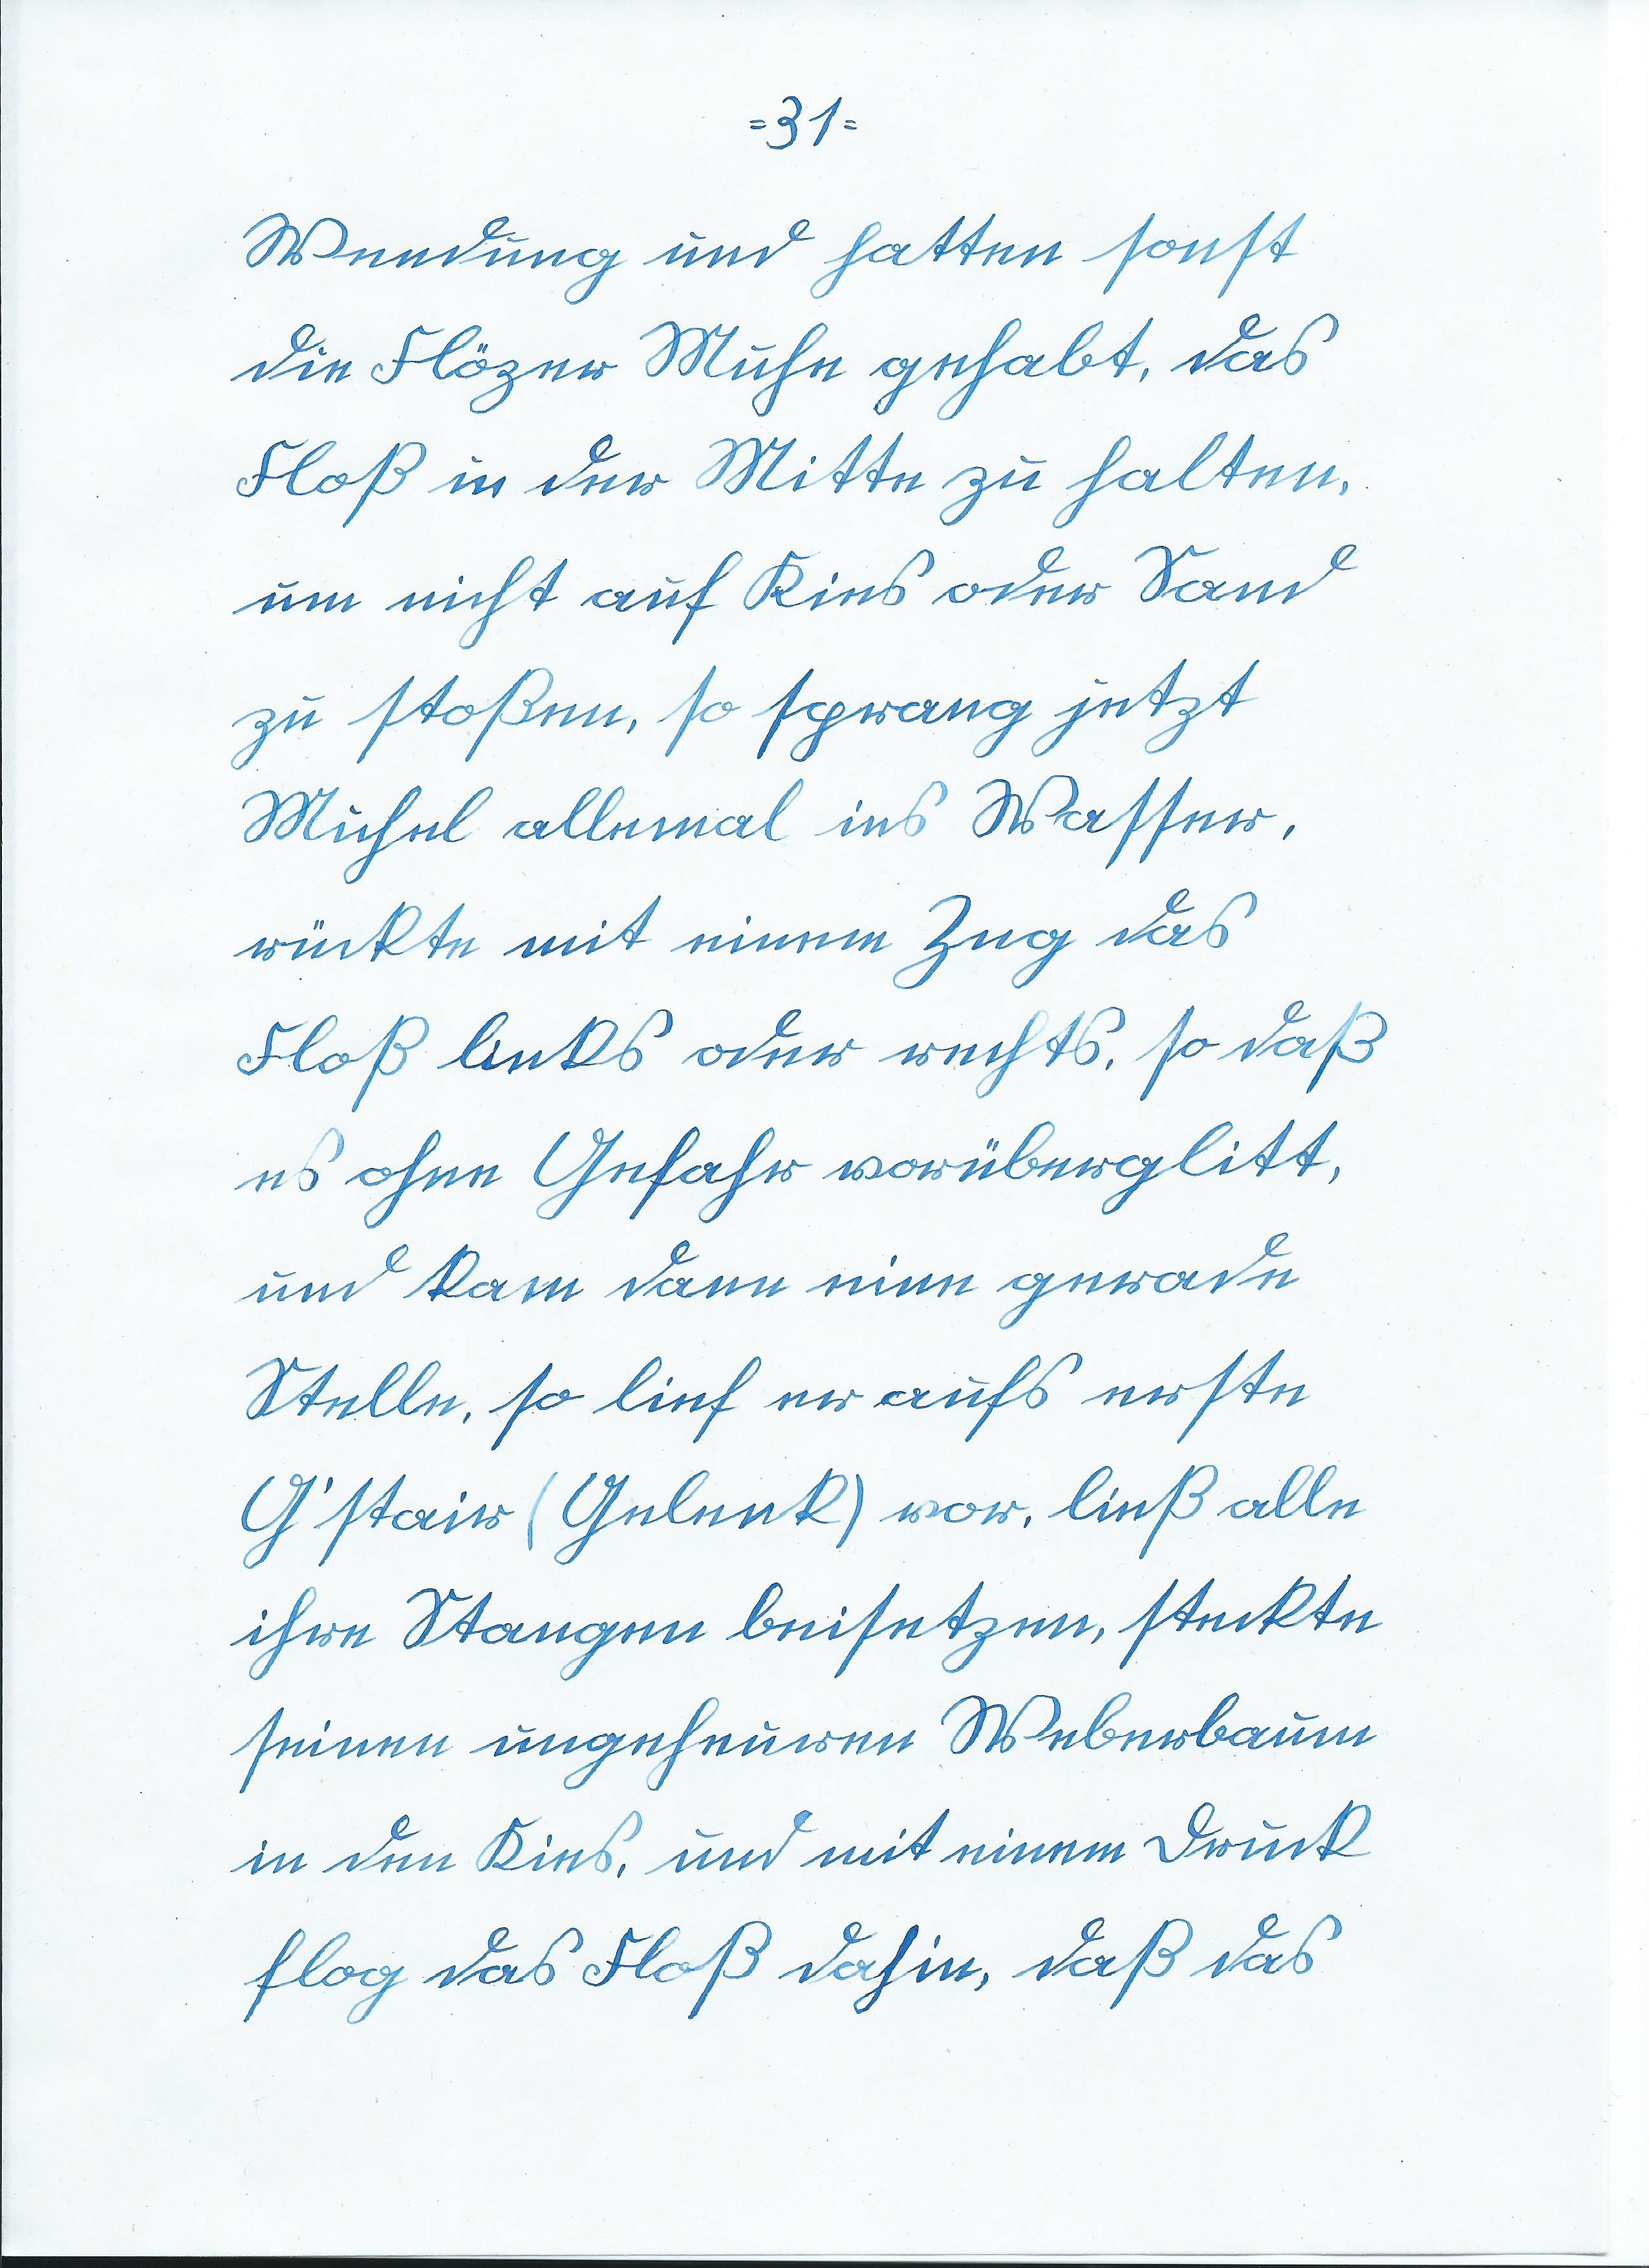 =31=
Wendung und hatten sonst
die Flözer Mühe gehabt, das
Floß in der Mitte zu halten,
um nicht auf Kies oder Sand
zu stoßen, so sprang jetzt
Michel allemal ins Wasser,
rückte mit einem Zug das
Floß links oder rechts, so daß
es ohne Gefahr vorüberglitt,
und kam dann eine gerade
Stelle, so lief er aufs erste
G'stair (Gelenk) vor, ließ alle
ihre Stangen beisetzen, steckte
seinen ungeheuren Weberbaum
in den Kies, und mit einem Druck
flog das Floß dahin, daß das